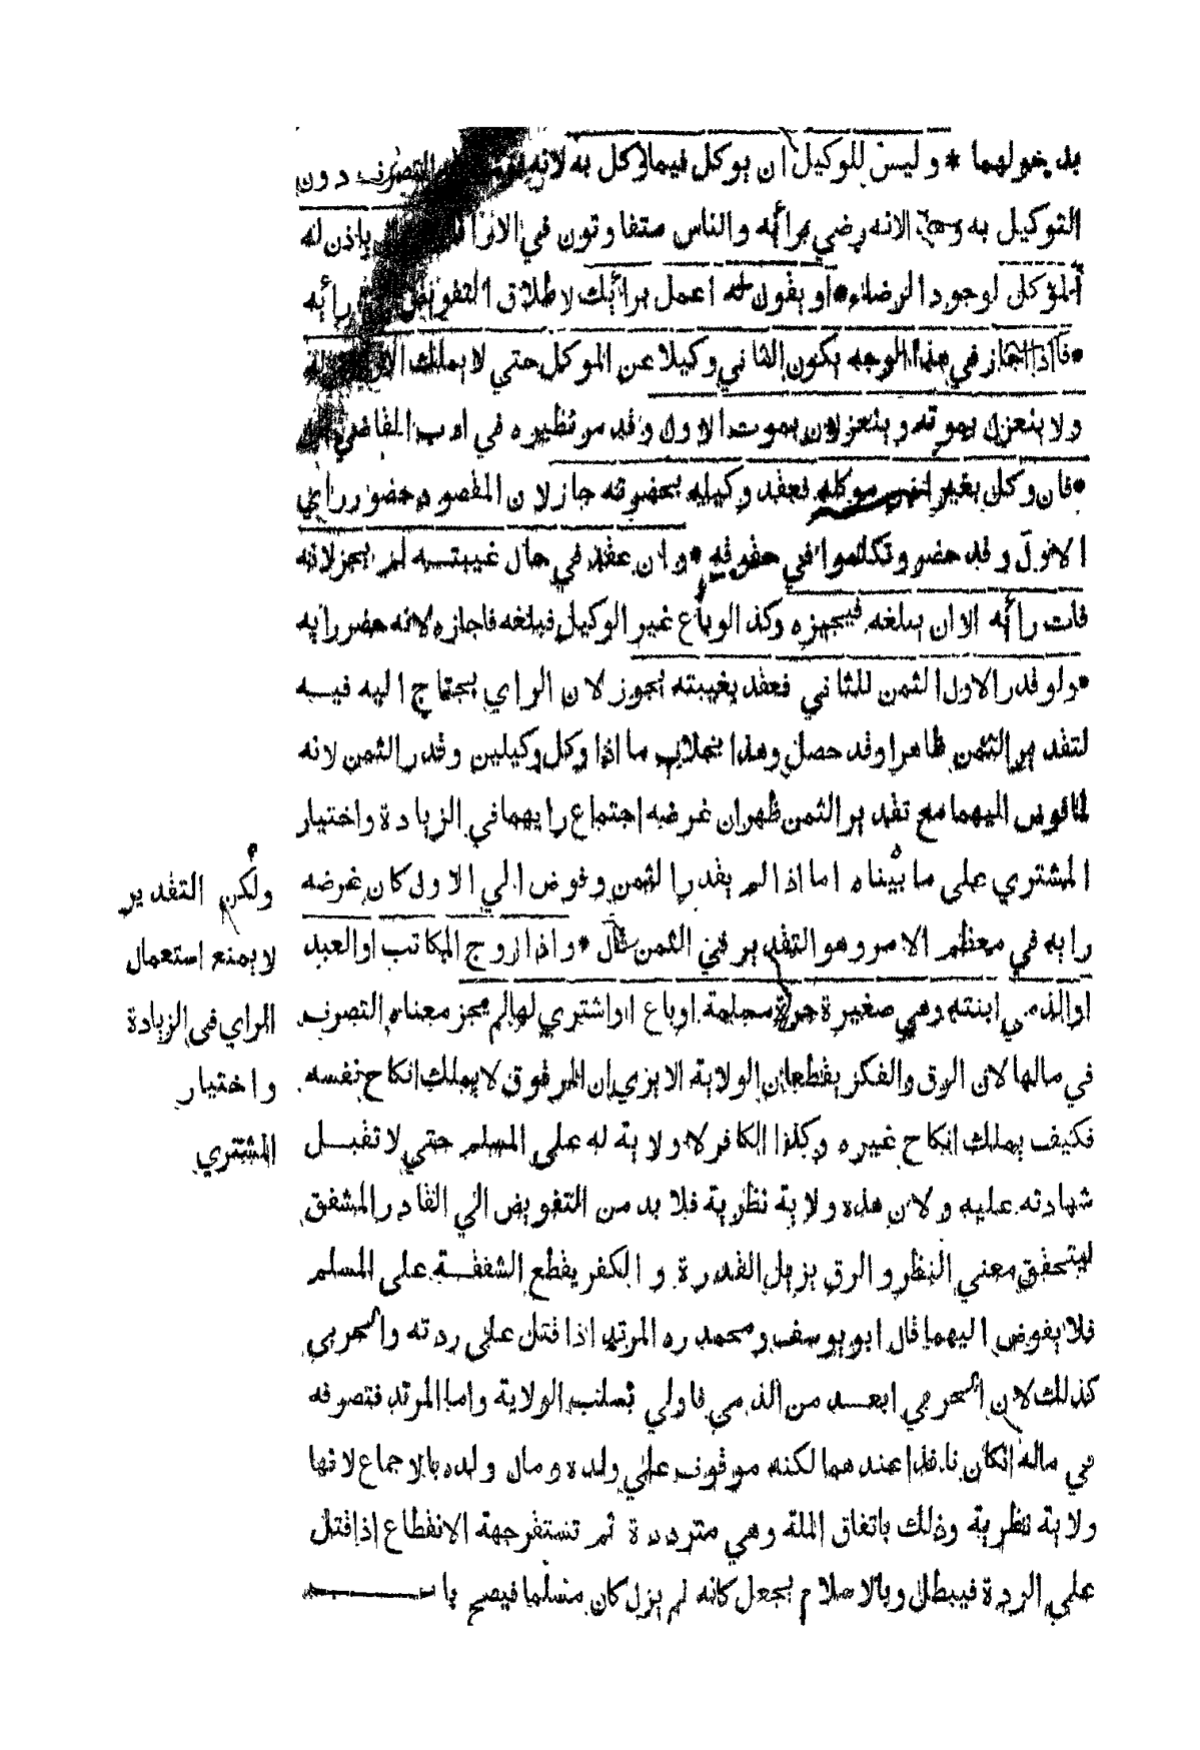 بدخولهما * وليس للوكيل ان يوكل فيما وكل به لانه التصرف دون
التوكيل به وهذا لانه رضي برأيه والناس متفاوتون في الاراء ياذن له
المؤكل لوجود الرضاء * او يقول له اعمل برائك لاطلاق التفويض رأيه
* فاذا اجاز في هذا الوجه يكون الثاني وكيلا عن الموكل حتي لا يملك الاول
ولا ينعزل بموته وينعزلان بموت الاول وقد مر نظيره في ادب القاضي
* فان وكل بغير اذن موكله فعقد وكيله بحضرته جاز لان المقصود حضور راي
الاول وقد حضر وتكلموا في حقوقه * وان عقد في حال غيبتـه لم يجز لانه
فات رأيه الا ان يبلغه فيجيزه وكذا لو باع غير الوكيل فبلغه فاجازه لانه حضر رايه
* ولو قدر الاول الثمن للثاني فعقد بغيبته يجوز لان الراي يحتاج اليه فيـه
لتقدير الثمن ظاهرا وقد حصل وهذا بخلاف ما اذا وكل وكيلين وقدر الثمن لانه
لما فوض اليهما مع تقدير الثمن ظهر ان غرضه اجتماع رايهما في الزيادة واختيار
المشتري على ما بيناه اما اذا لم يقدر الثمن وفوض الي الاول كان غرضه
رايه في معظم الامر وهو التقدير في الثمن قال * واذا زوج المكاتب او العبد
او الذمي ابنته وهي صغيرة حرة مسلمة او باع او اشتري لها لم يجز معناه التصرف
في مالها لان الرق والكفر يقطعان الولاية الا يري ان المرقوق لا يملك انكاح نفسه
فكيف يملك انكاح غيره وكذا الكافر لا ولاية له على المسلم حتي لا تقبـل
شهادته عليه ولان هذه ولاية نظرية فلا بد من التفويض الي القادر المشفق
ليتحقق معني النظر والرق يزيل القدرة والكفر يقطع الشفقـة على المسلم
فلا يفوض اليهما قال ابو يوسف ومحمد ره المرتد اذا قتل على ردته والحربي
كذلك لان الحربي ابعـد من الذمي فاولي بسلب الولاية واما المرتد فتصرفه
في ماله انكان نافذا عندهما لكنه موقوف علي ولده ومال ولده بالاجماع لانها
ولاية نظرية وذلك باتفاق الملة وهي مترددة ثم تستقر جهة الانقطاع اذا قتل
علي الردة فيبطل وبالاسلام يجعل كانه لم يزل كان مسلما فيصح باب
ولكن التقدير
لا يمنع استعمال
الراي في الزيادة
واختيار
المشتري